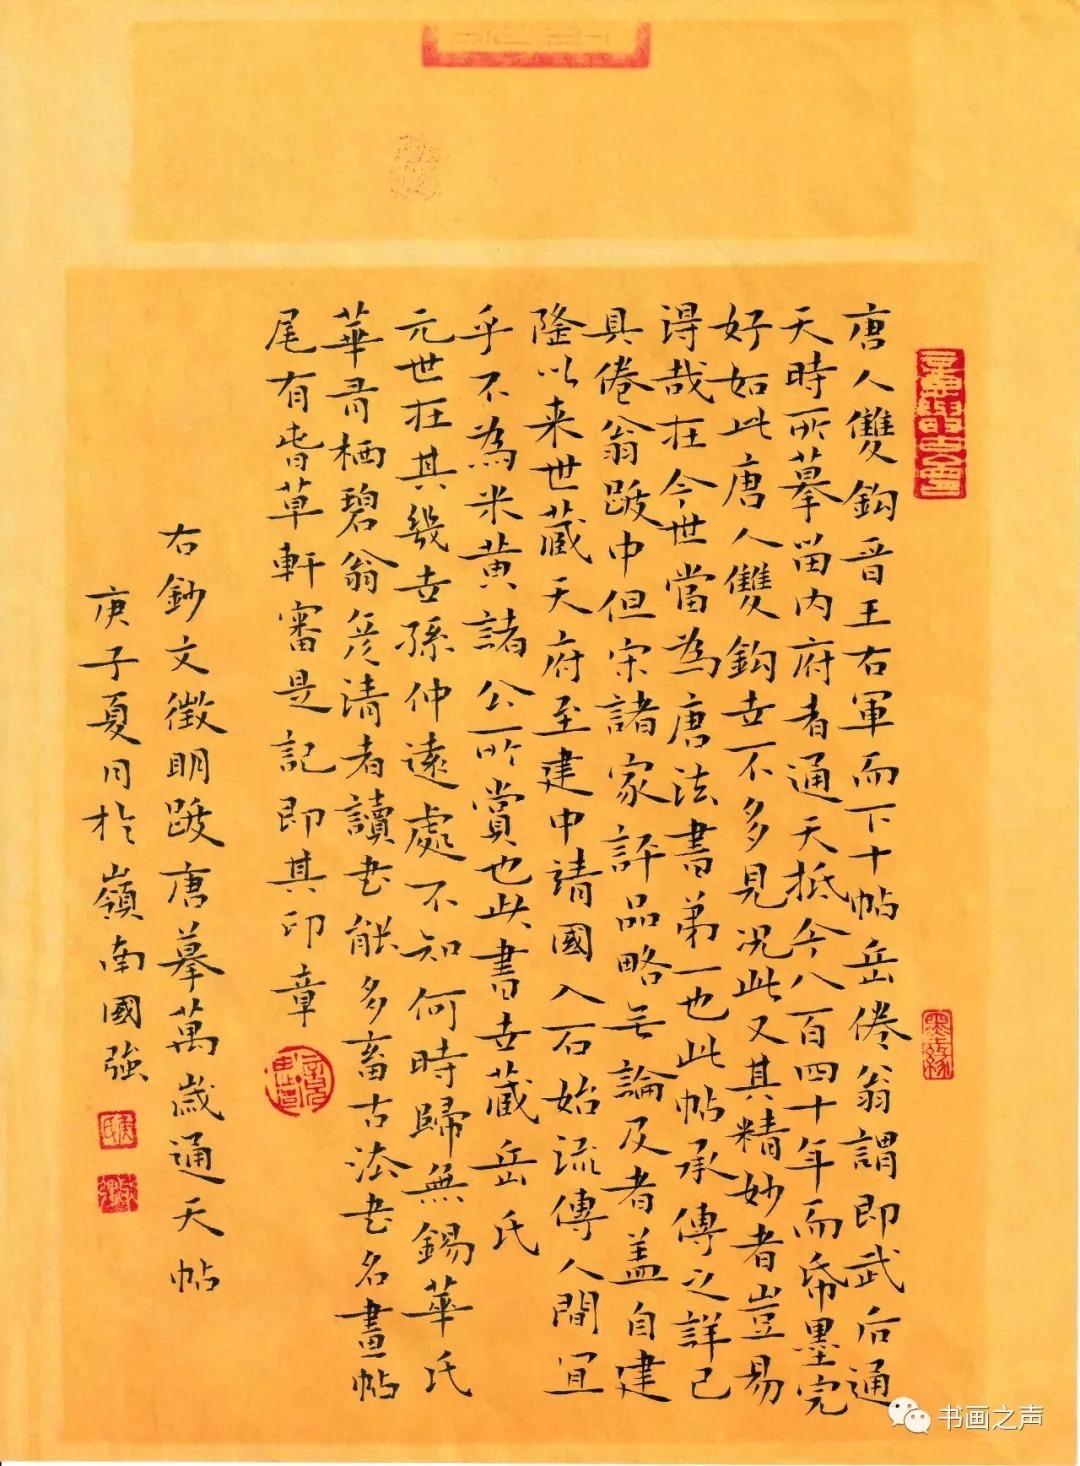 唐人雙鈎晉王右軍而下十帖岳倦翁謂即武后通
天時所摹留内府者通天抵今八百四十年而帋墨完
好如此唐人雙鈎世不多見况此又其精妙者豈易
得哉在今世當為唐法書第一也此帖承傳之詳已
具倦翁跋中但宋諸家評品略無論及者盖自建
隆以来世藏天府至建中請國入石始流傳人間宜
乎不為米黄諸公所賞也此書世藏岳氏
元世在其幾世孫仲遠處不知何時歸無錫華氏
華君栖碧翁彦清者讀書能多畜古法書名畫帖
尾有春草軒審定記即其印章
右鈔文徵明跋唐摹萬歲通天帖
庚子夏月於嶺南國強
墨緣
书画之声